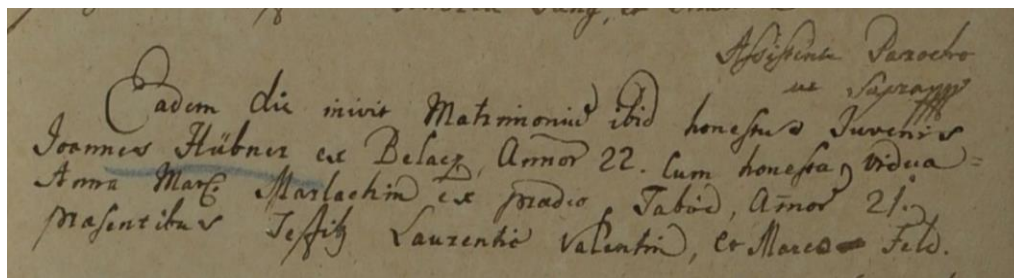 Assistente Parocho
ut Supra
Eadem die inivit Matrimoniū ibid honestus Juvenis
Joannes Hübner ex Belacz, Annor 22. Cum honesta vidua
Anna Marg. Marlachin ex prædio Tabód, Annor 21.
præsentibus Testib Laurentio Valentin, et Marco Feld.